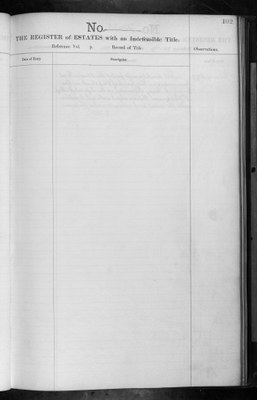 102
No.
THE REGISTER of ESTATES with an Indefeasible Title.
Reference Vol. p. Record of Title.
Observations.
Date of Entry
Description